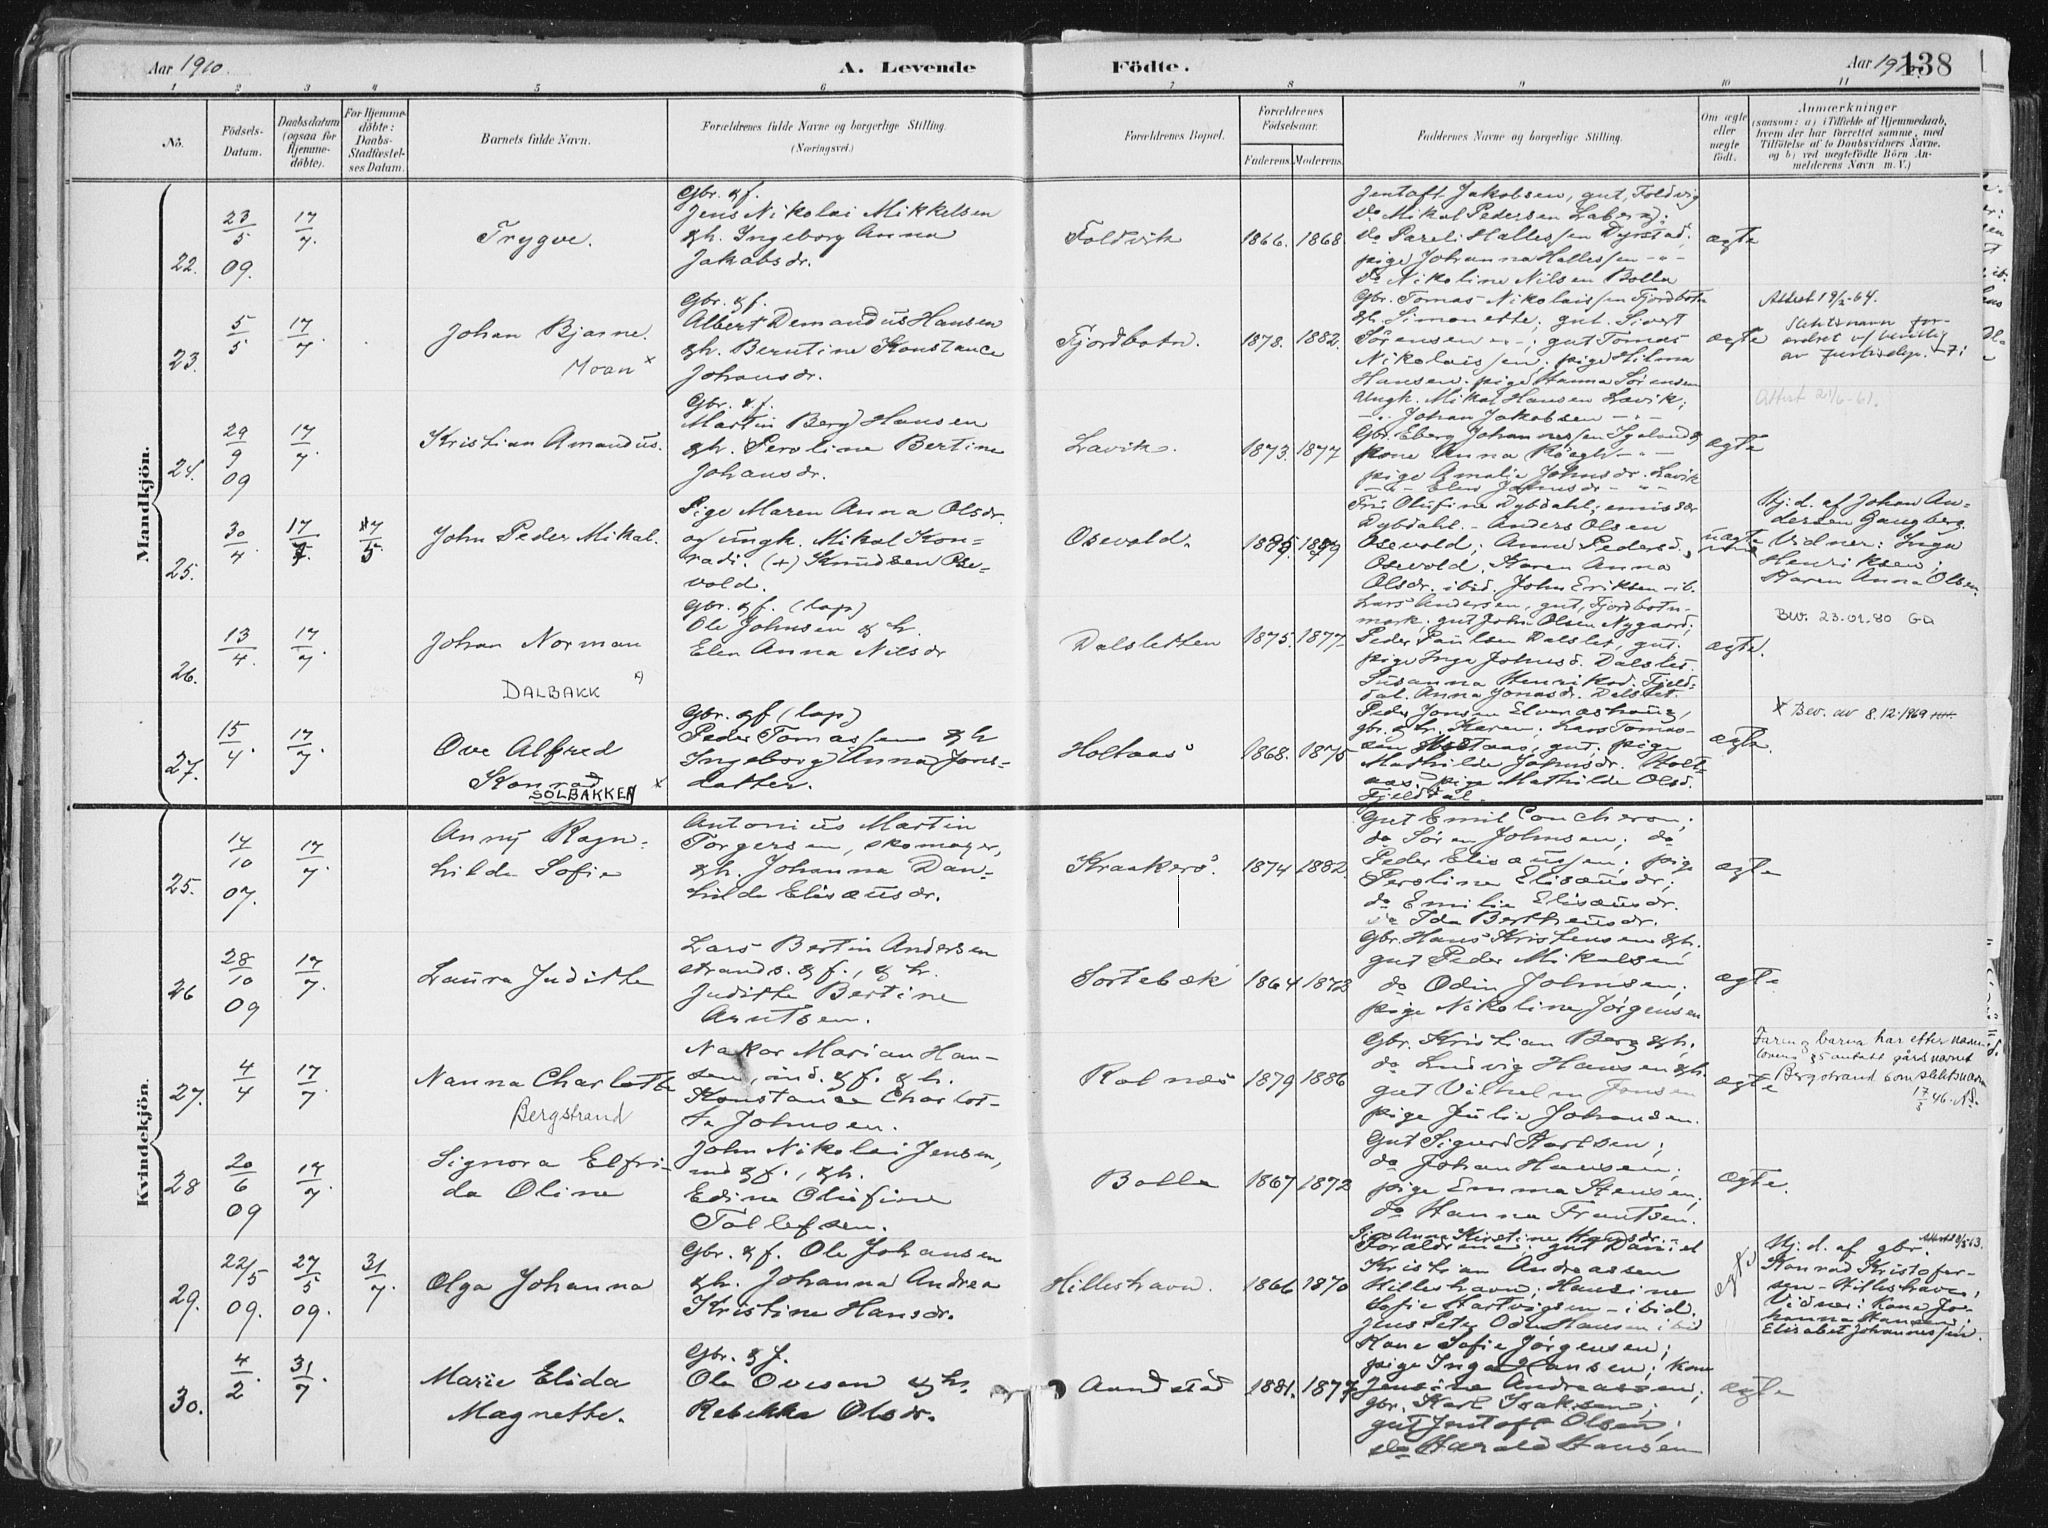 Aar 1910.
A. Levende
Födte.
Aar 1910
138
1 2 3 4 5 6 7 8 9 10 11
No.
Födsels-
Datum.
Daabsdatum
(ogsaa for
Hjemme-
döbte).
For Hjemme-
döbte:
Daabs-
Stadfæstel-
ses Datum.
Barnets fulde Navn.
Forældrenes fulde Navne og borgerlige Stilling.
(Næringsvei.)
Forældrenes Bopæl.
Forældrenes
Födselsaar.
Faderens. Moderens.
Faddernes Navne og borgerlige Stilling.
Om ægte
eller
uægte
födt.
Anmærkninger
(saasom: a) i Tilfælde af Hjemmedaab,
hvem der har forrettet samme, med
Tilföielse af to Daabsvidners Navne.
og b) ved uægtefödte Börn An-
melderens Navn m. V.)
Mandkjön.
22.
23/5 09.
17/7.
Trygve.
Gbr. & f.
Jens Nikolai Mikkelsen
& h. Ingeborg Anna
Jakobsdr.
Foldvik
1866. 1868.
Jentoft Jakobsen, gut, Foldvig
do Mikal Pedersen Laberg;
do Pareli Hallessen Dyrstad;
pige Johanna Hallessen -"-
do Nikoline Nilsen Bolla
ægte
23.
5/5
17/7
Johan Bjarne.
Moan x
Gbr. & f.
Albert Demandus Hansen
& h. Berntine Konstance
Johansdr.
Fjordbotn.
1878. 1882.
Gbr. Tomas Nikolaissen Fjordbotn
& h. Simonette; gut. Sivert
Sörensen -"-; gut Tomas
Nikolaissen; pige Hilma
Hansen. pige Hanna Sörensen
ægte
Attest 18/2-64.
Slektsnavn for-
andret v/ bevillig
av justisdep.
24.
29/9 09
17/7
Kristian Amandus.
Gbr. & f.
Martin Berg Hansen
& h. Peroline Bertine
Johansdr.
Lavik.
1873. 1877
Ungk. Mikal Hansen Lavik;
-"- Johan Jakobsen -"-
Gbr. Eberg Johannessen
kone Anna
pige Amalie Johnsdr. Lavik
-"- Elen Johnsdr -"-
ægte
Attest 21/6-61.
25.
30/4
17/7.
7/5
John Peder Mikal.
Pige Maren Anna Olsdr.
og ungk. Mikal Kon-
radi. (+) Knudsen Ose-
vold.
Osevold.
Fru Olufine Dybdahl; emissær
Dybdahl. - Anders Olsen
Osevold; Anne Pedersd.,
Osevold, Karen Anna
Olsdr. ibid. John Eriksen ib.
uægte
Hj. d. af Johan An-
dersen Gangberg.
Vidner: Inga
Henriksen;
Karen Anna Olsen.
26.
13/4.
17/7
Johan Norman
DALBAKK
Gbr. & f. (lap)
Ole Johnsen & h.
Elen Anna Nilsdr
Dalsletten
1875. 1877
Lars Andersen, gut, Fjordbotn-
mark; gut John Olsen Nygaard;
Peder Paulsen Dalslet, gut.
pige Inga Johnsd. Dalslet.
Susanna Henriksd. Fjeld-
dal. Anna Jonasdr. Dalslet.
ægte.
Bev. 23.01.80 GD
27.
15/4
17/7
Ove Alfred
Konrad
SOLBAKKEN x
Gbr. & f (lap)
Peder Tomassen & h
Ingeborg Anna Jons-
datter.
Holtaas
1868. 1875
Peder Jonsen Elvenstrang,
gbr. & h. Karen; Lars Tomas-
sen Holtaas, gut; pige
Mathilde Johnsdr. Holt-
aas; pige Mathilde Olsd.
Fjelddal.
ægte.
x Bev. av 8.12.1969
Kvindekjön.
25.
14/10 07.
17/7.
Anny Ragn-
hilde Sofie
Antonius Martin
Torgersen, skomager,
& h. Johanna Dan-
hilde Elisæusdr.
Kraakerö.
1874 1882.
Gut Emil Concheron;
do Sören Johnsen; do
Peder Elisæussen; pige
Peroline Elisæusdr;
do Emilie Elisæusdr.
do Ida Bertheusdr.
ægte
26
28/10 09
17/7.
Laura Judithe
Lars Bertin Andersen
strands. & f., & h.
Judithe Bertine
Arntsen.
Sortebæk
1864 1873
Gbr. Hans Kristensen & h.
gut Peder Mikalsen
do Odin Johnsen;
pige Nikoline Jörgensen
ægte.
27.
4/4
17/7
Nanna Charlotte
Bergstrand
Nakor Marian Han-
sen, ind. & f. & h.
Konstance Charlot-
te Johnsen.
Rolnæs
1879 1886
Gbr. Kristian Berg & h.
do Ludvig Hansen & h.
gut Vilhelm Jensen
pige Julie Johansen.
ægte
Faren og barna har etter navne-
lovens §5 antatt gårdsnavnet
Bergstrand som slektsnavn
17/3 46.
28
20/6 09
17/7.
Signora Elfri-
da Oline
John Nikolai Jensen,
ind & f., & h.
Edine Olufine
Tollefsen.
Bolla
1867 1872
Gut Sigurd Karlsen;
do Johan Hansen;
pige Emma Stensen;
do Hanna Frantsen.
ægte.
29.
22/5 09.
27/5 09.
31/7
Olga Johanna
Gbr. & f. Ole Johansen
& h. Johanna Andrea
Kristine Hansdr.
Hilleshavn.
1866 1870
Pige Anne Kirstine Hansdr. -
Forældrene; gut Daniel
Kristian Andreassen
Hilleshavn; Hansine
Sofie Hartvigsen - ibid.
Jens Peter Odin Hansen ibid
ægte
Hj. d. af gbr.
Konrad Kristofer-
sen - Hilleshavn,
Vidner: Kona Jo-
hanna Hansen;
Elisabet Johannessen.
30.
4/2.
31/7
Marie Elida
Magnette.
Gbr. & f.
Ole Ovesen & h.
Rebekka Olsdr.
Aandstad
1881. 1877
Kone Sofie Jörgensen;
pige Inga Hansen; kone
Jensine Andreassen;
gbr. Karl Isaksen;
gut Jentoft Olsen;
do Harald Hansen
ægte